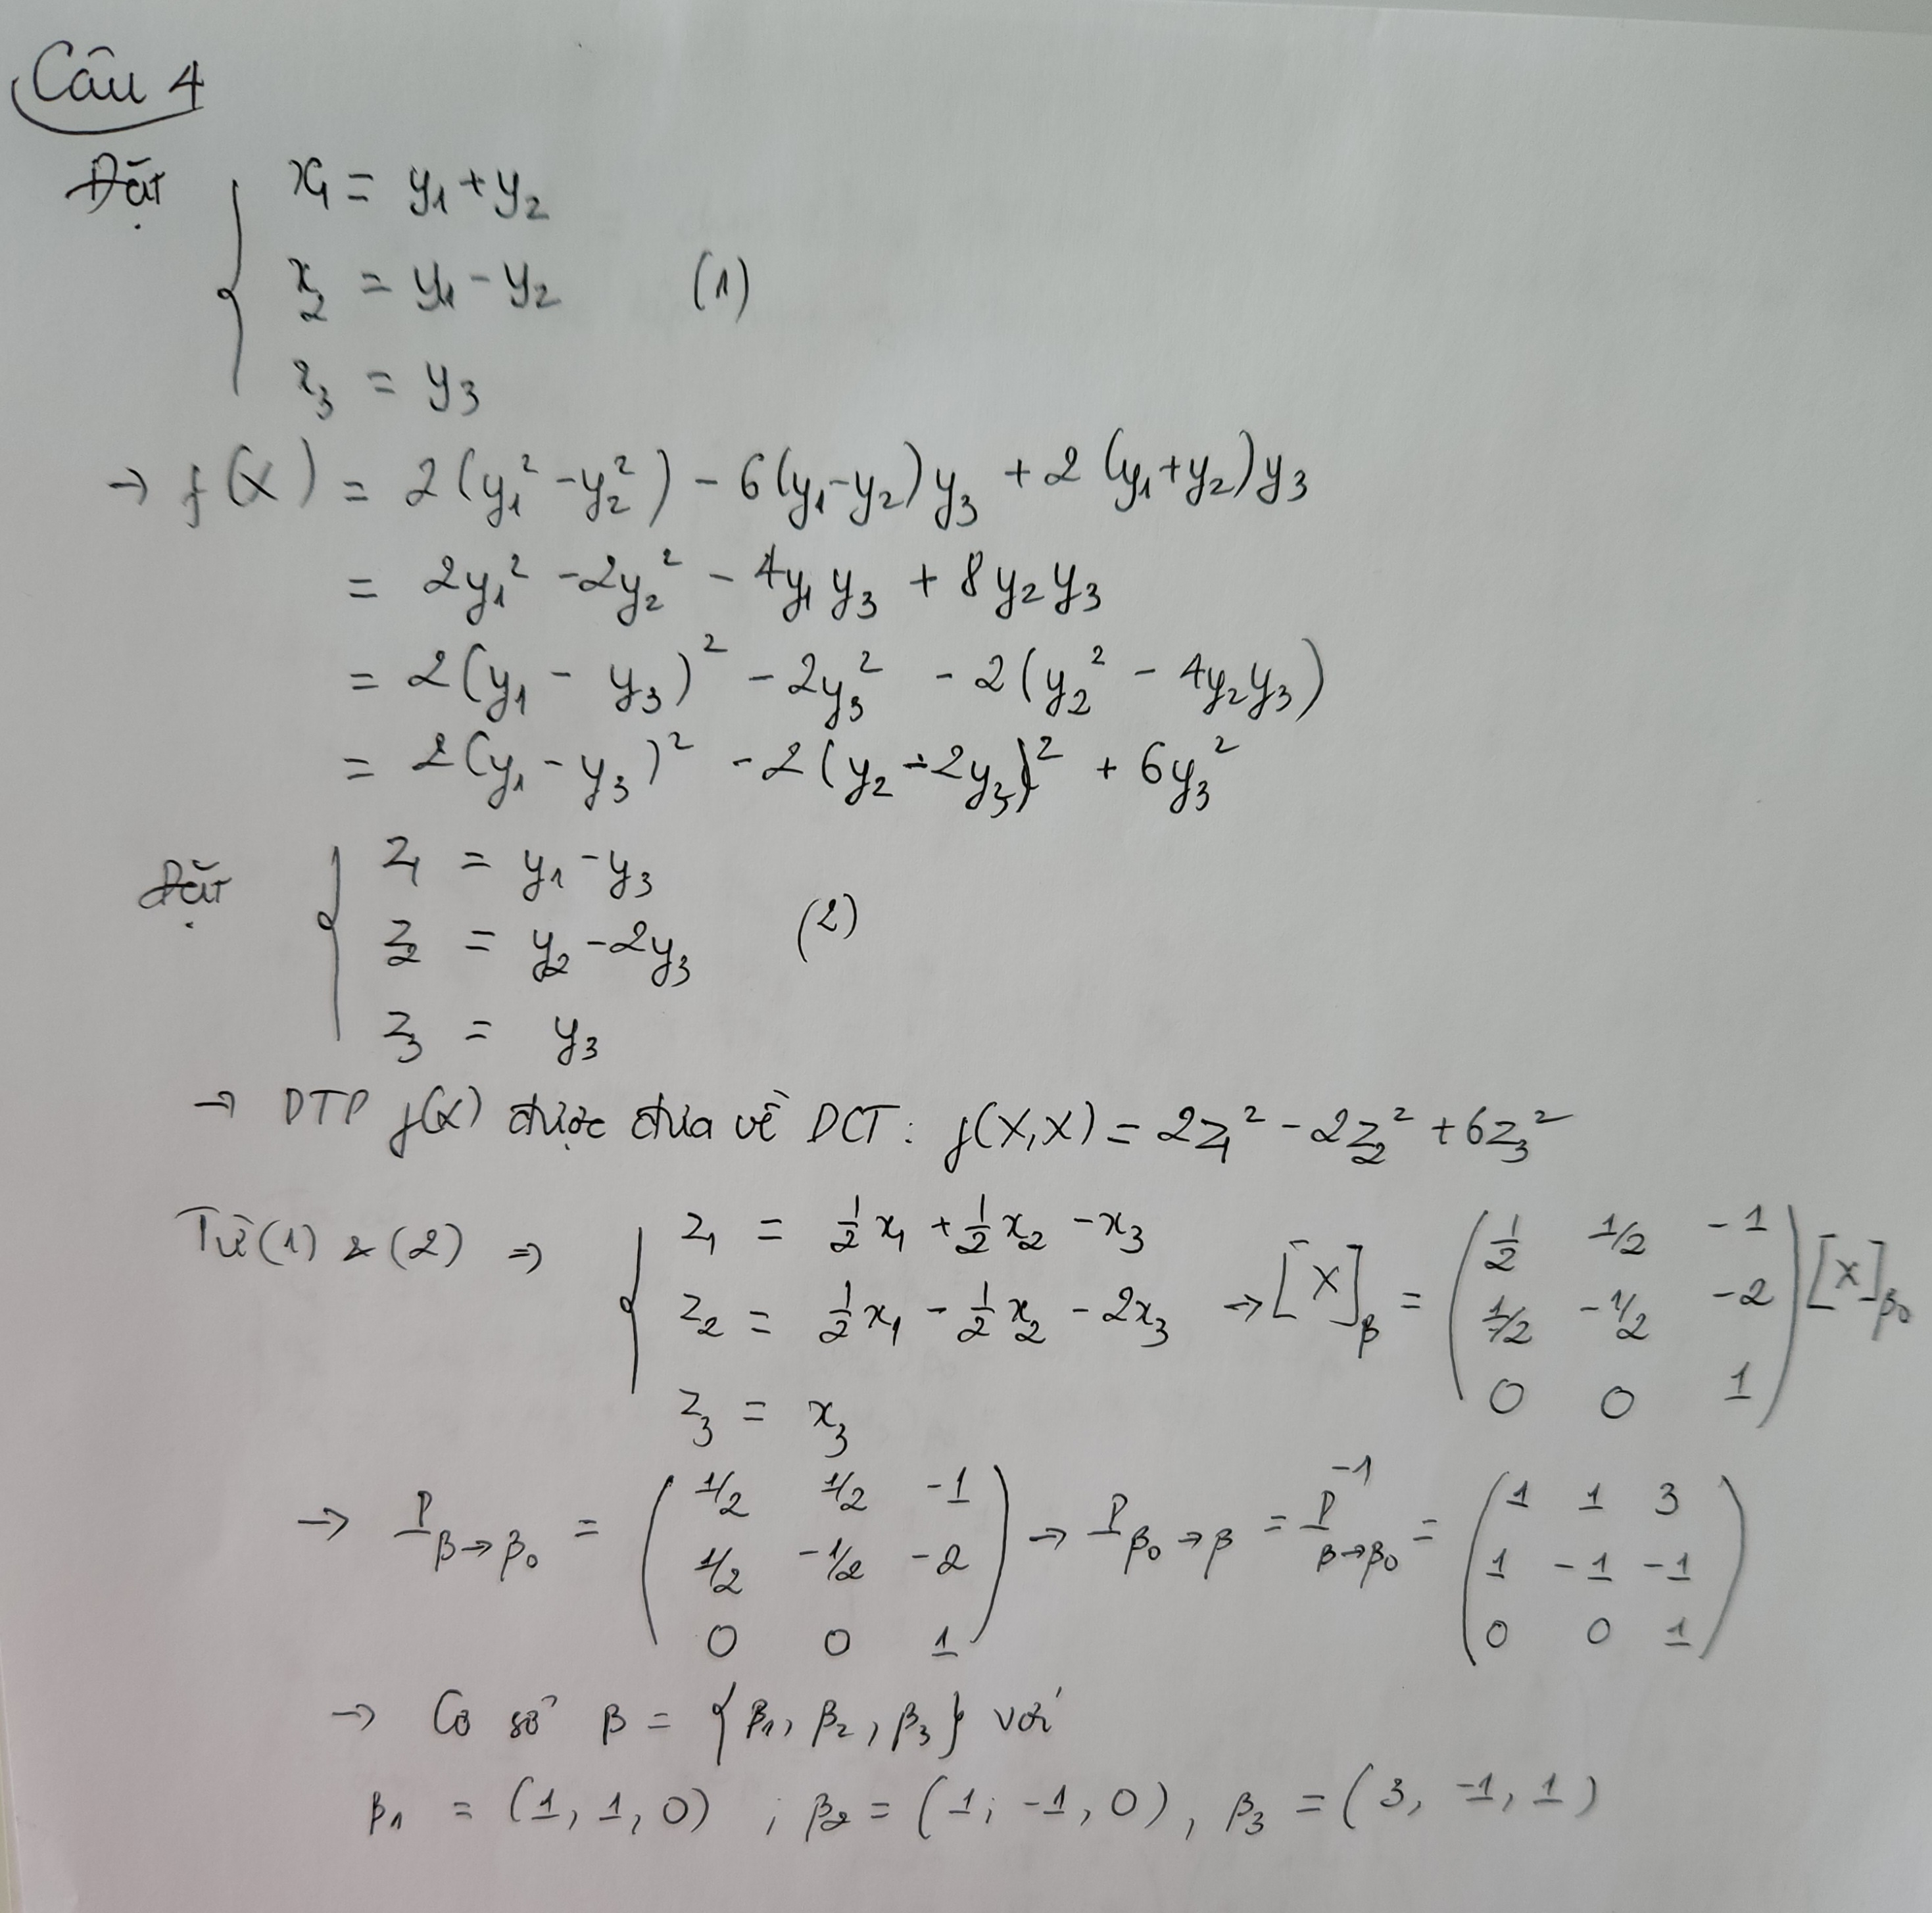 Câu 4
Đặt { x₁ = y₁ + y₂
x₂ = y₁ - y₂ (1)
x₃ = y₃
→ f(x) = 2(y₁² - y₂²) - 6(y₁ - y₂)y₃ + 2(y₁ + y₂)y₃
= 2y₁² - 2y₂² - 4y₁y₃ + 8y₂y₃
= 2(y₁ - y₃)² - 2y₃² - 2(y₂² - 4y₂y₃)
= 2(y₁ - y₃)² - 2(y₂ - 2y₃)² + 6y₃²
Đặt { z₁ = y₁ - y₃
z₂ = y₂ - 2y₃ (2)
z₃ = y₃
→ DTP f(x) được đưa về DCT: f(X,X) = 2z₁² - 2z₂² + 6z₃²
Từ (1) & (2) ⇒ { z₁ = 1/2 x₁ + 1/2 x₂ - x₃
z₂ = 1/2 x₁ - 1/2 x₂ - 2x₃
z₃ = x₃
→ [X]_β = ( 1/2 1/2 -1
1/2 -1/2 -2
0 0 1 ) [X]_β₀
→ P_β→β₀ = ( 1/2 1/2 -1
1/2 -1/2 -2
0 0 1 )
→ P_β₀→β = P⁻¹_β→β₀ = ( 1 1 3
1 -1 -1
0 0 1 )
→ Cơ sở β = {β₁, β₂, β₃} với
β₁ = (1, 1, 0) ; β₂ = (1; -1, 0), β₃ = (3, -1, 1)